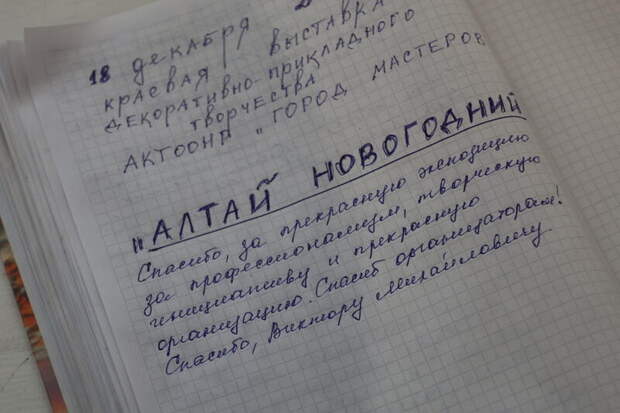 18 декабря
краевая выставка
декоративно-прикладного
творчества
АКТООНП "Город мастеров
"Алтай новогодний
Спасибо, за прекрасную экспозицию
за профессионализм, творческую
инициативу и прекрасную
организацию. Спасиб организаторам!
Спасибо, Виктору Михайловичу